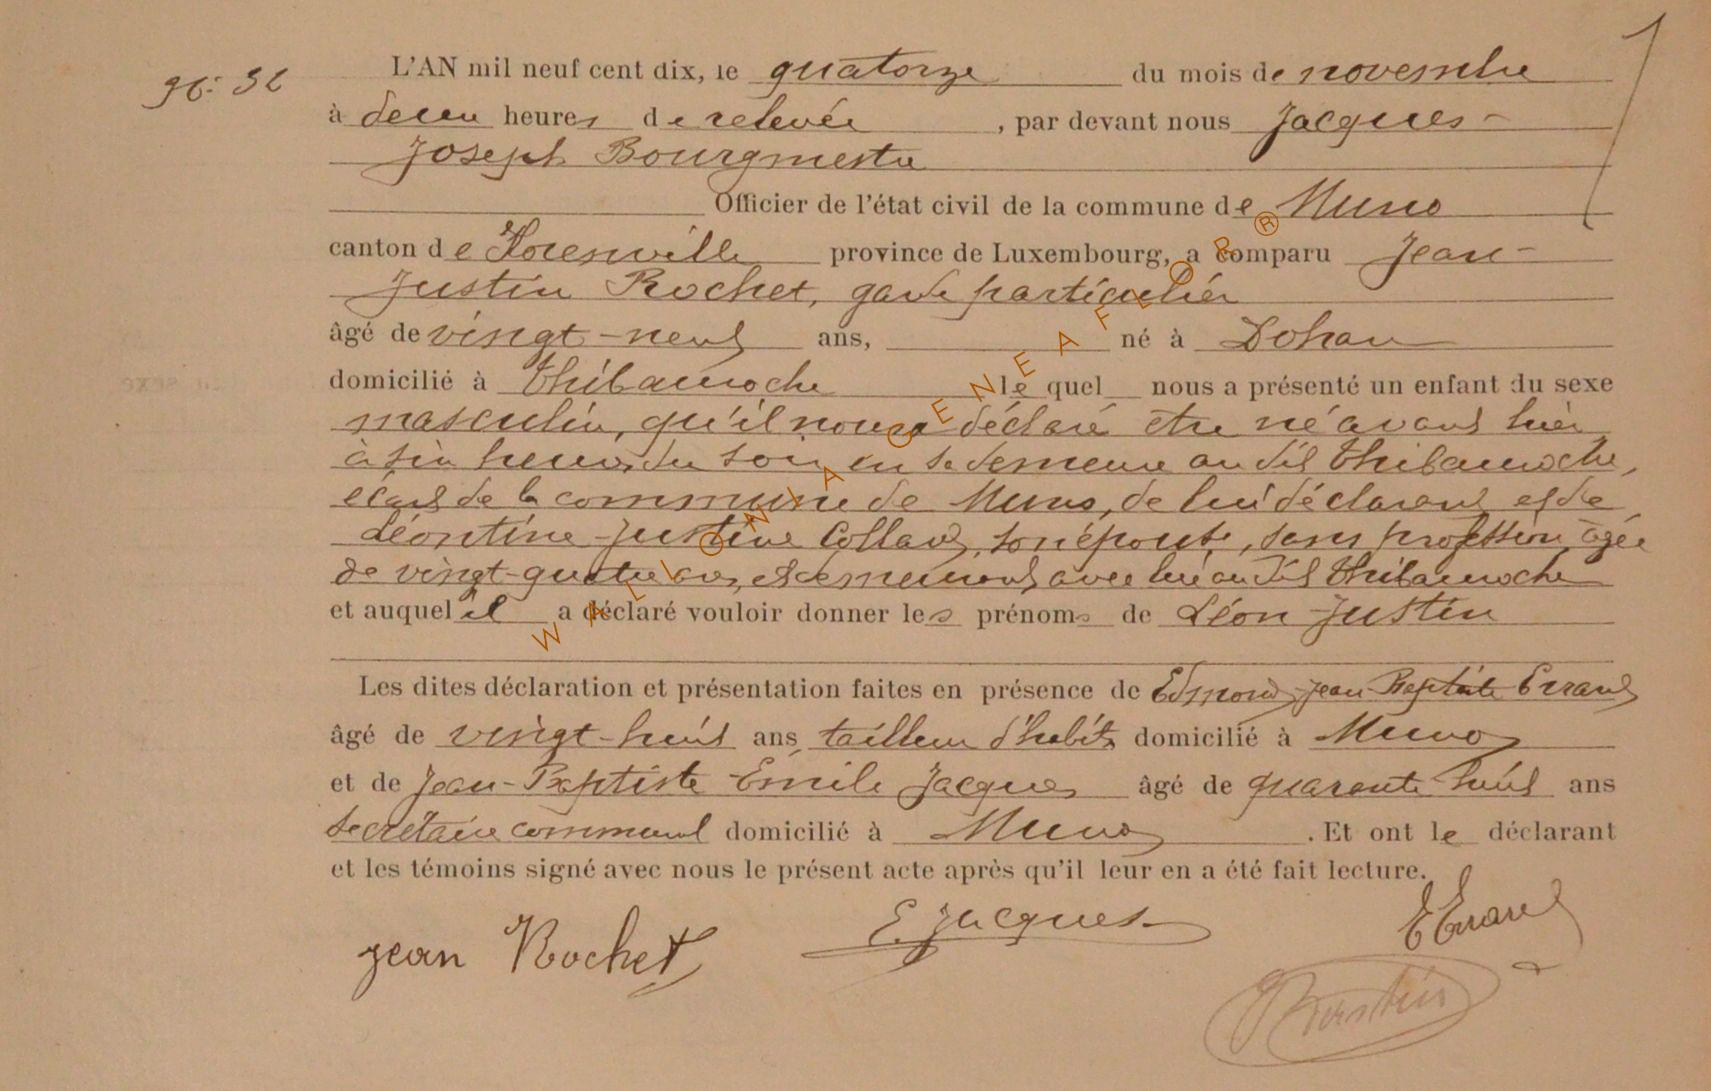 No: 32
L'AN mil neuf cent dix, le quatorze du mois de novembre
à deux heures de relevée, par devant nous Jacques-
Joseph Bourgmestre
Officier de l'état civil de la commune de Muno
canton de Florenville province de Luxembourg, a comparu Jean-
Justin Rochet, garde particulier
âgé de vingt-neuf ans, né à Dohan
domicilié à Thibauroche lequel nous a présenté un enfant du sexe
masculin, qu'il nous a déclaré être né avant hier
à six heures du soir en sa demeure au dit Thibauroche,
écart de la commune de Muno, de lui déclarant et de
Léontine-Justine Collard, son épouse, sans profession, âgée
de vingt-quatre ans, et demeurant avec lui au dit Thibauroche
et auquel il a déclaré vouloir donner les prénoms de Léon-Justin
Les dites déclaration et présentation faites en présence de Edmond-Jean-Baptiste Evrard
âgé de vingt-huit ans tailleur d'habits domicilié à Muno
et de Jean-Baptiste Emile Jacques âgé de quarante huit ans
secrétaire communal domicilié à Muno. Et ont le déclarant
et les témoins signé avec nous le présent acte après qu'il leur en a été fait lecture.
Jean Rochet E. Jacques E Evrard
WALLONIA GENEAFLOR ®